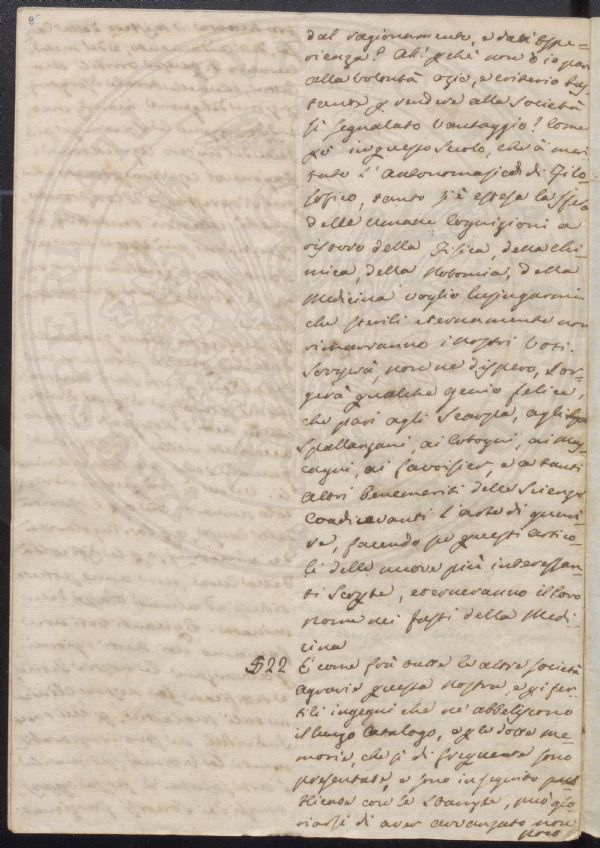 dal ragionamento, e dall'Espe=
rienza? Ah! pchè non ò io pari
alla volontà ozio, e criterio bas
tante p rendere alla Società
sì segnalato Vantaggio! Come
però in questo Secolo, che à meri
tato l'autonomasia di Filo
sofico, tanto si è estesa la sfera
delle Umane Cognizioni a
ristoro della Fisica, della Chi
mica, della Notomia, della
Medicina voglio lusingarmi
che sterili eternamente non
rimarranno i nostri Voti.
Sorgerà, non ne dispero, Sor=
gerà qualche genio felice,
che pari agli Scarpa, agli
Spallanzani, ai Cotogni, ai Mas
cagni, ai Lavoisier, e a tanti
altri benemeriti delle Scienze
Coadiuvanti l'arte di guari
re, facendo su questi artico
li delle nuove più interessan
ti Scopte, eterneranno il loro
nome nei fasti della Medi
cina
§22 E come fra tutte le altre società
agrarie questa nostra, e pi fer
tili ingegni che ne abbeliscono
il lungo Catalogo, e p le dotte me
morie, che si di frequente sono
presentate, e sono in seguito pub
blicate con le Stampe, può glo
riarsi di aver avvanzato non
poco
8